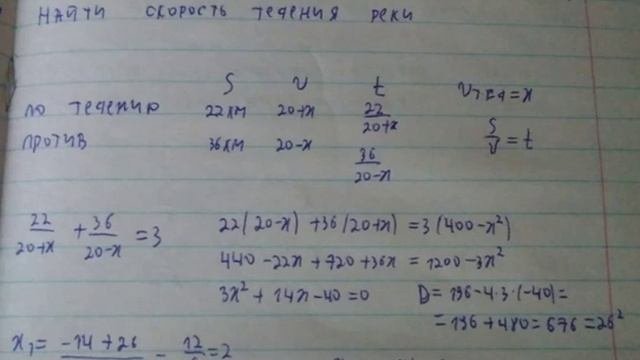 НАЙТИ СКОРОСТЬ ТЕЧЕНИЯ РЕКИ
S V t Vтеч = x
ПО ТЕЧЕНИЮ 22 км 20+x 22/(20+x)
ПРОТИВ 36 км 20-x 36/(20-x) S/V = t
22/(20+x) + 36/(20-x) = 3
22(20-x) + 36(20+x) = 3(400-x²)
440-22x+720+36x = 1200-3x²
3x²+14x-40=0 D=196-4·3·(-40)=
=196+480=676=26²
x₁= -14+26 - 12 =2